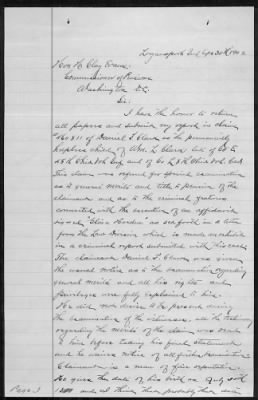 Logansport, Ind. Apr 30th, 190
Hon. H. Clay Evans,
Commissioner of Pensions
Washington D.C.
Sir:
I have the honor to return
all papers and submit my report in claim
of Daniel F. Clark as the permanently
helpless child of Wm. L. Clark late of Co
45th Ohio Vol. Inf. and of Co. Ohio Vol. Cav.
This claim was referred for special examination
as to general merits and title to pension of the
claimant and as to the criminal features
connected with the execution of an affidavit
signed "Eliza" as set forth in a letter
from the Law Division which is made an exhibit
in a criminal report submitted with this case.
The claimant Daniel F. Clark was given
the usual notice as to the examination regarding
general merits and all his rights and
privileges were fully explained to him.
He did not desire to be present during
the examination of the witnesses, all the testimony
regarding the merits of the claim was read
to him before taking his final statement
and he waived notice of all further examination
Claimant is a man of fair reputation.
He gave the date of his birth as July
and I think that probably that date
Page 3